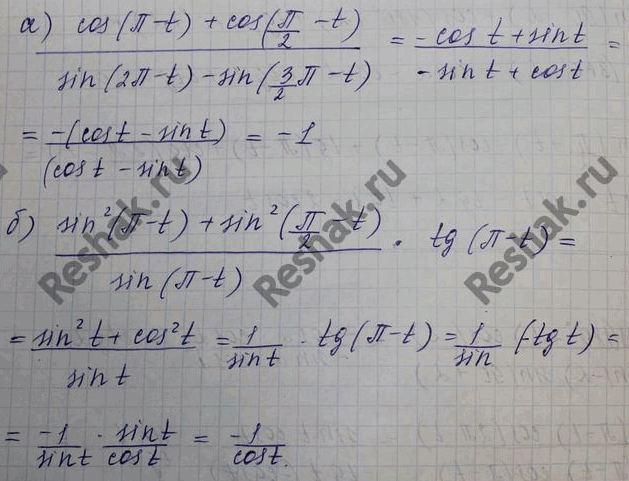 а) cos(π-t) + cos(π/2 -t) / sin(2π-t) - sin(3/2 π-t) = -cos t + sin t / -sin t + cos t =
= -(cos t - sin t) / (cos t - sin t) = -1
б) sin²(π-t) + sin²(π/2 -t) / sin(π-t) · tg(π-t) =
= sin²t + cos²t / sin t = 1 / sin t · tg(π-t) = 1 / sin (-tg t) =
= -1 / sin t · sin t / cos t = -1 / cos t.
Reshak.ru
Reshak.ru
Reshak.ru